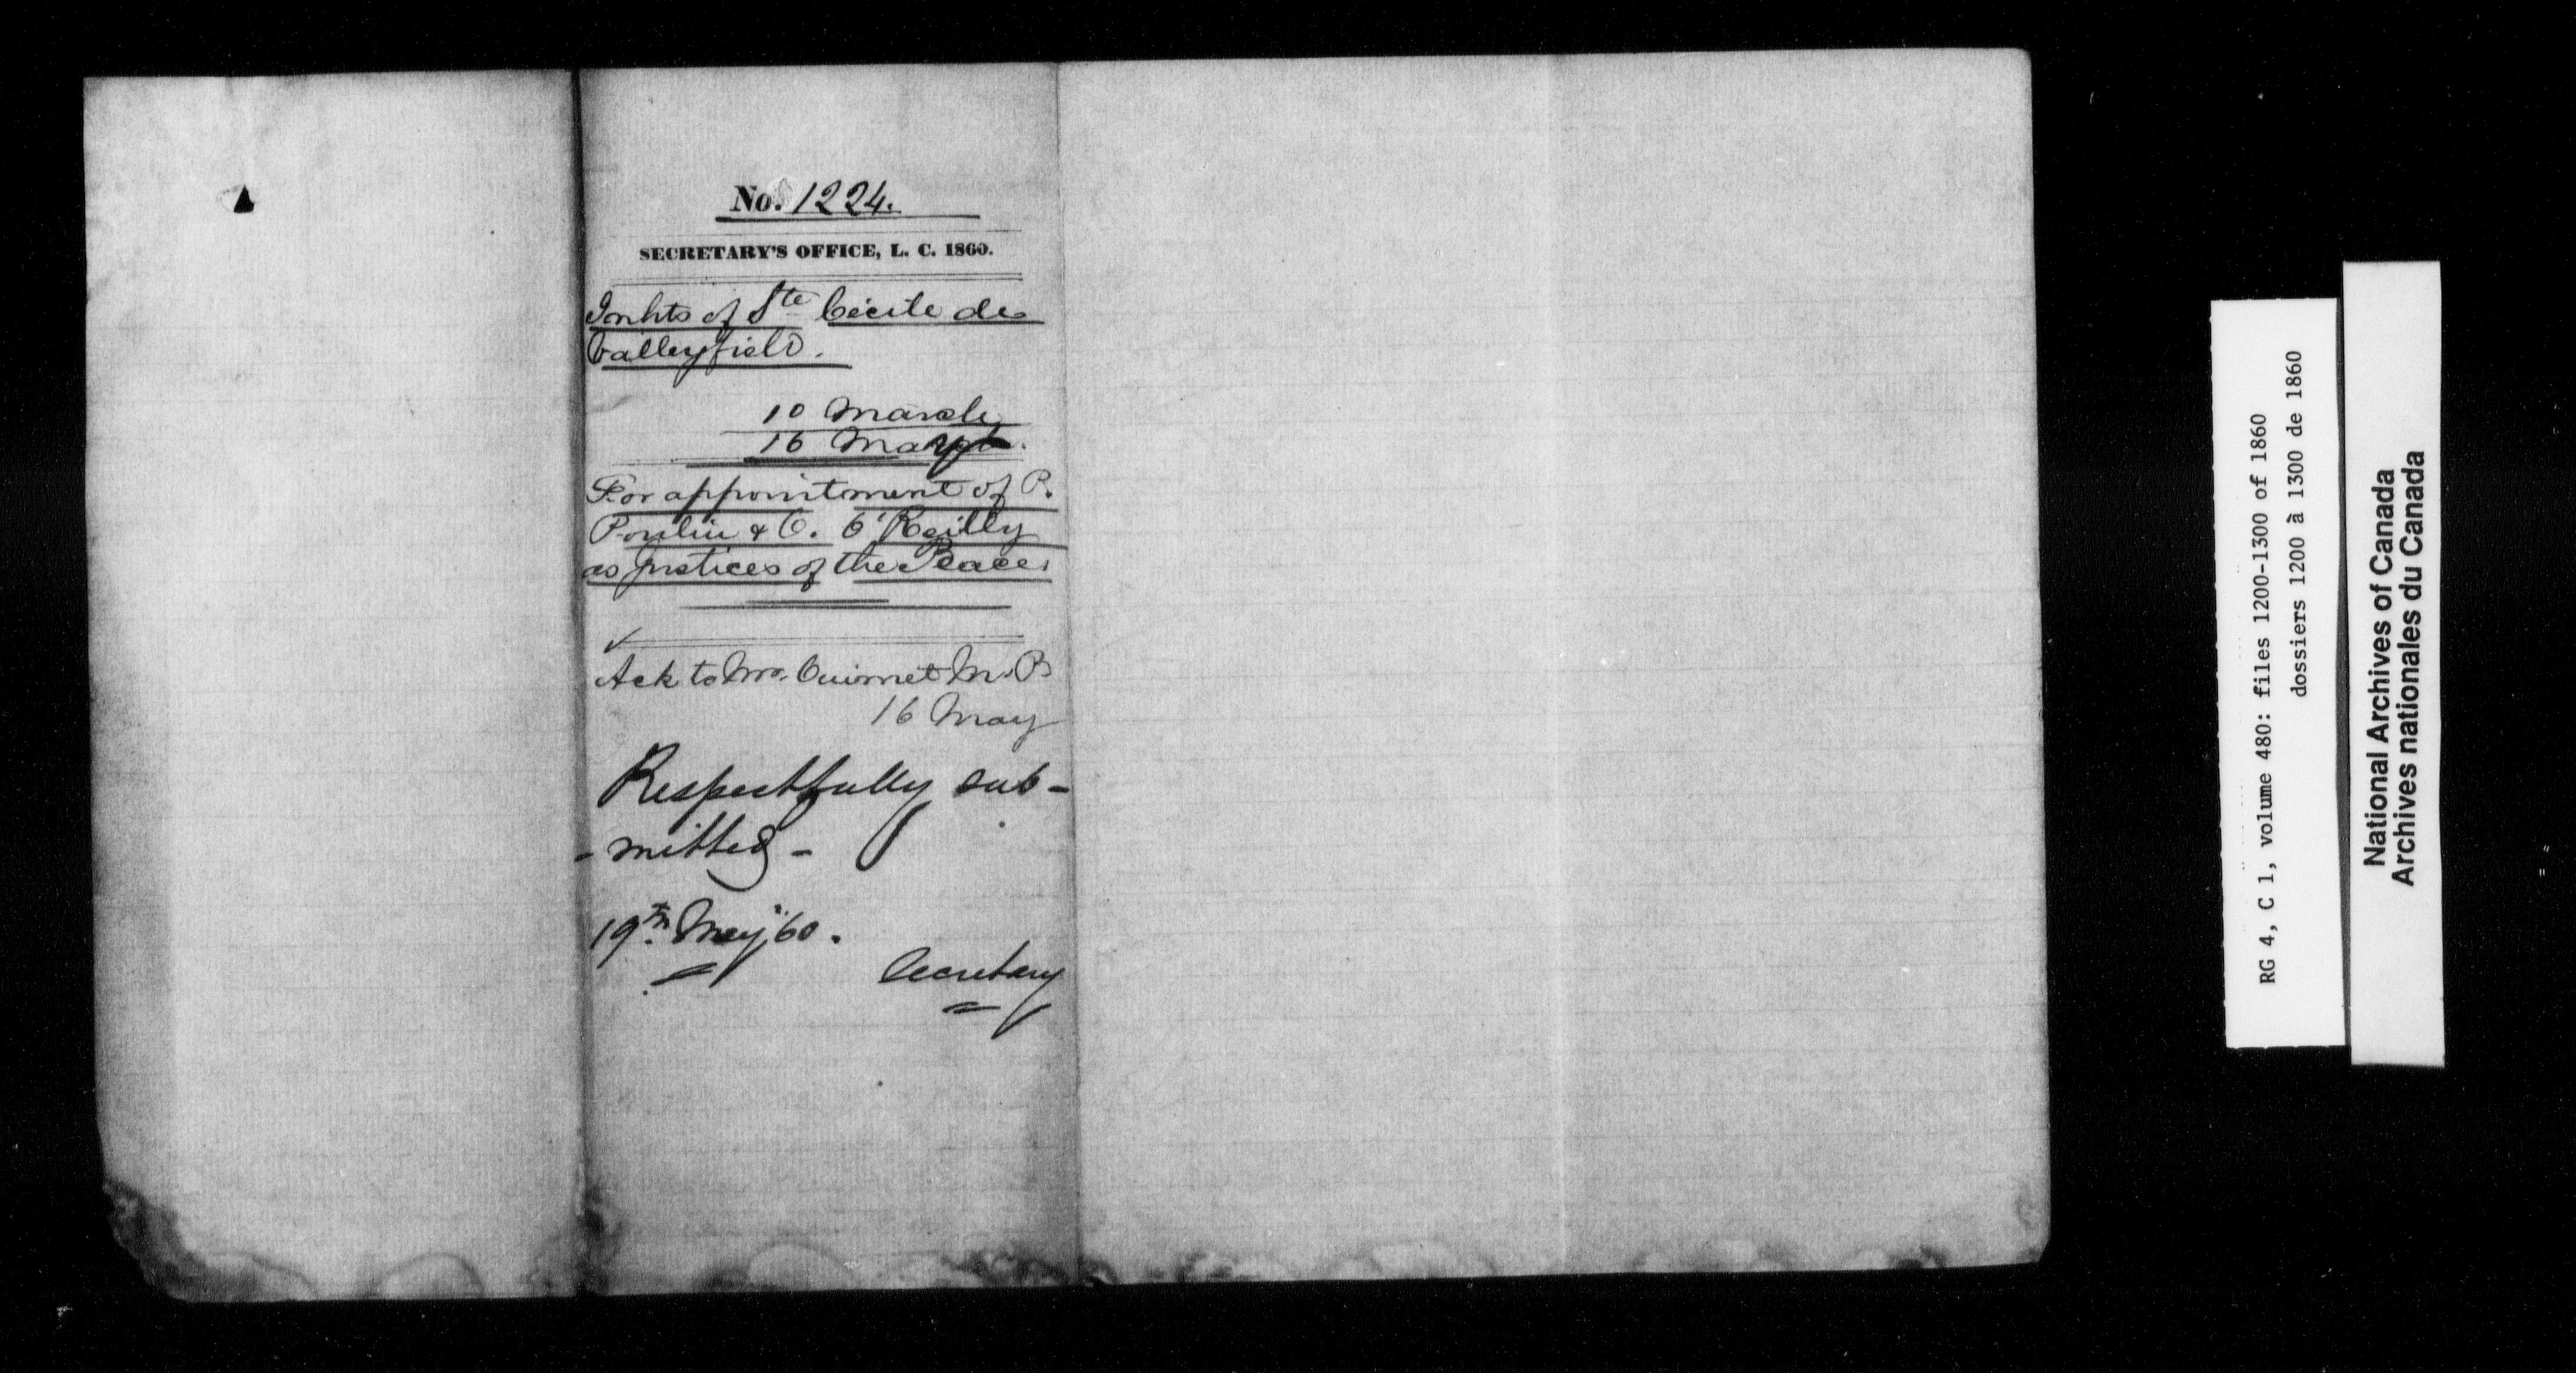 No. 1224.
SECRETARY'S OFFICE, L. C. 1860.
Inhts of Ste Cécile de
Valleyfield.
10 March
16 May
For appointment of P.
Poulin & C. O'Reilly
as Justices of the Peace.
Ack to Mr. Ouimet M. P.
16 May
Respectfully sub-
-mitted -
19th May '60.
Secretary
RG 4, C 1, volume 480: files 1200-1300 of 1860
dossiers 1200 à 1300 de 1860
National Archives of Canada
Archives nationales du Canada